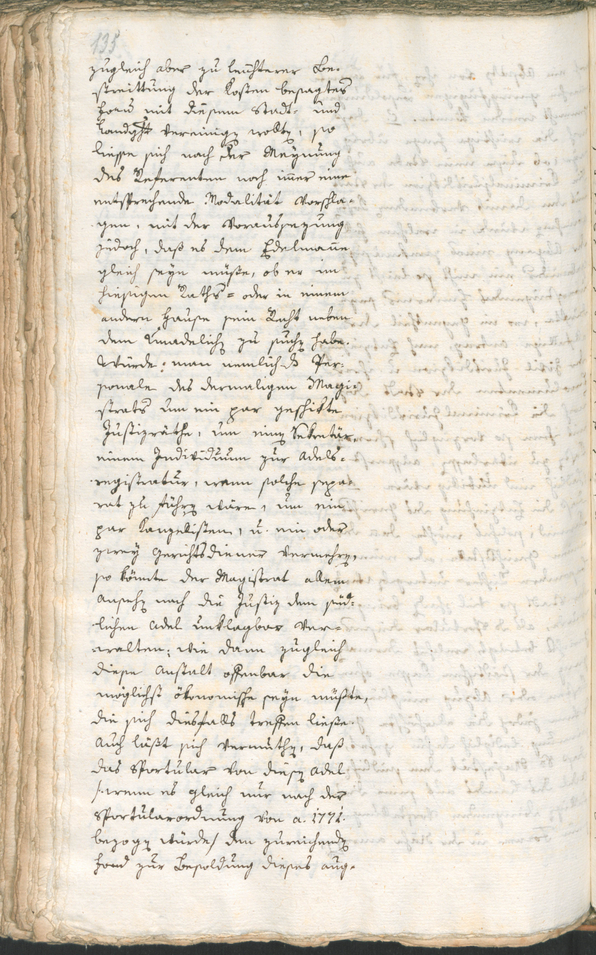 135
zugleich aber zu leuchterer Be-
streittung der Kosten besagtes
Forum mit diesem Stadt- und
Landght vereinigen wollte, so
liesse sich nach der Meynung
des Referenten noch immer eine
entsprechende Modalität vorschla-
gen, mit der Voraussezung
jedoch, daß es dem Edelmanne
gleich seyn müße, ob er im
hiesigen Raths- oder in einem
andern Hause sein Recht neben
dem Unadelichen zu suchen habe.
Würde man nemlich das Per-
sonale des dermaligen Magi-
strats um ein par geschikte
Justizräthe, um einen Sekretär
einem Individuum zur Adels-
registratur, wann solche sepa-
rat zu führen wäre, um ein
par Kanzelisten, u. ein oder
zwey Gerichtsdiener vermehren,
so könnte der Magistrat allem
Ansehen nach die Justiz dem süd-
lichen Adel unklagbar ver-
walten; wie dann zugleich
diese Anstalt offenbar die
möglichst ökonomische seyn müßte,
die sich diesfalls treffen ließe.
Auch läßt sich vermuthen, daß
das Sportular von diesen Adel
/: wenn es gleich nur nach der
Sportularordnung von a. 1771
bezogen würde / den zureichenden
Fond zur Besoldung dieses aug-